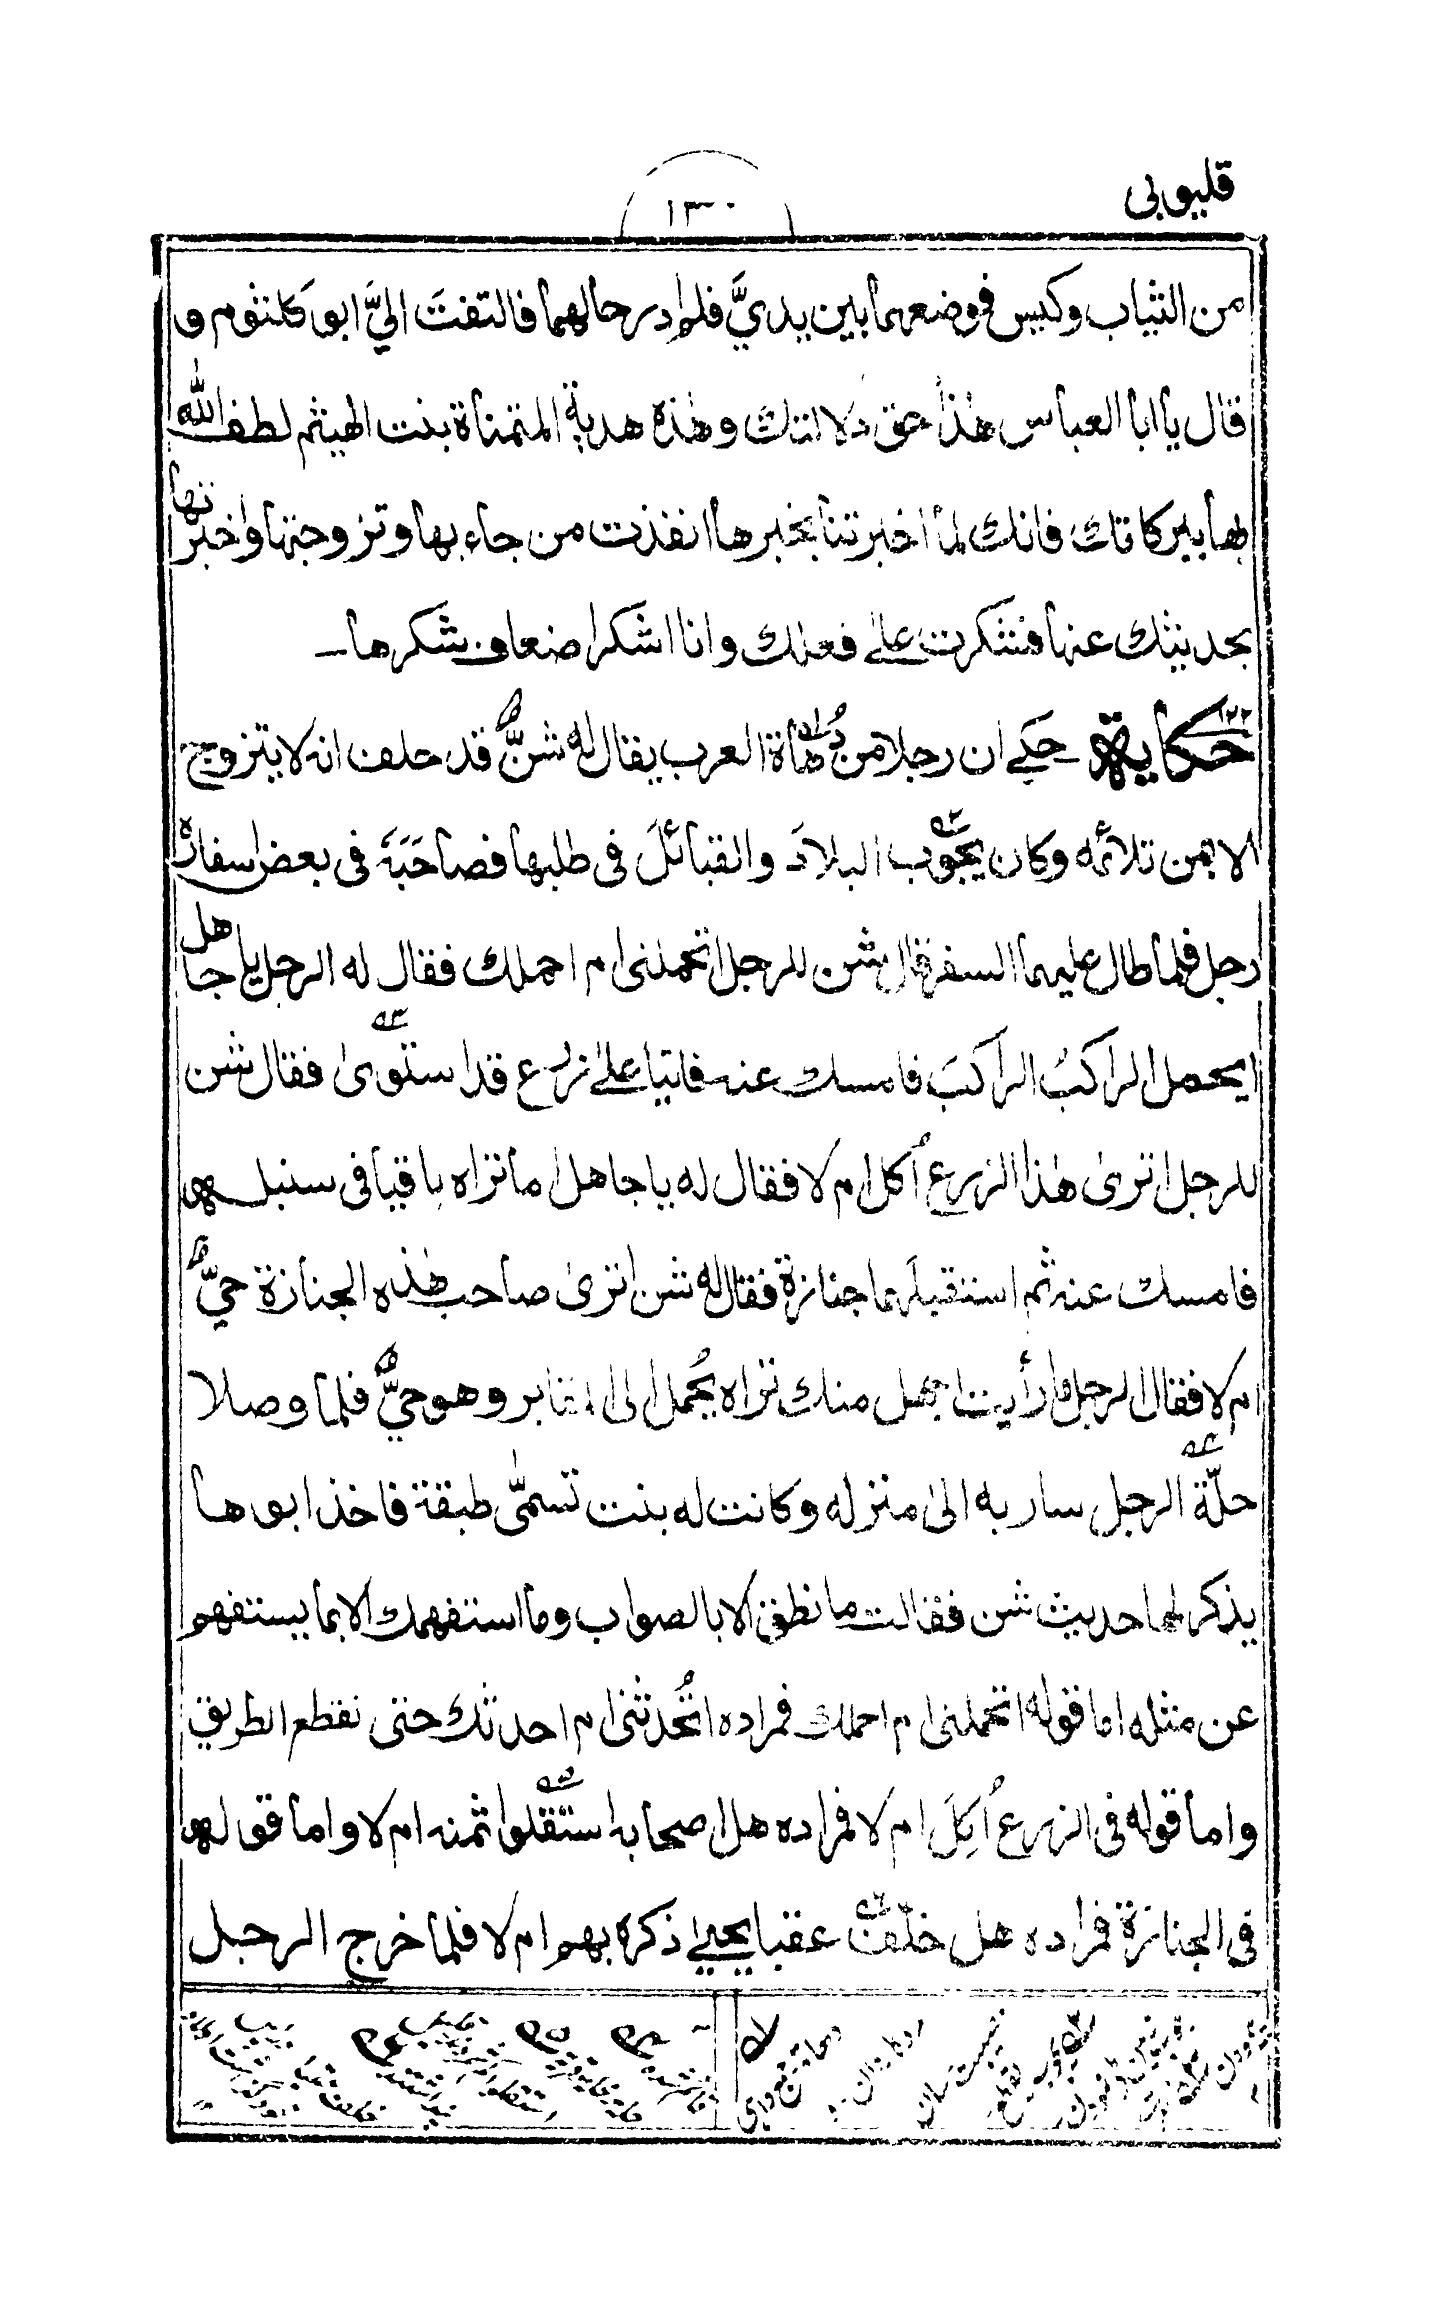 قليوبى
١٣٠
من الثياب وكيس فوضعهما بين يديَّ فلم ادر حالهما فالتفتَ اليَّ ابو كلثوم و
قال يا ابا العباس هٰذا حق دلالتك وهٰذه هدية المتمناة بنت الهيثم لطف الله
بها ببركاتك فانك لما اخبرتنا بخبرها انفذت من جاء بها وتزوجتها واخبرتها
بحديثك عنها فشكرت على فعلك وانا اشكر اضعاف شكرها۔
١٢٢ حكاية حكى ان رجلا من دُهاة العرب يقال له شنٌّ قد حلف انه لا يتزوج
الا بمن تلائمه وكان يجوّب البلادَ والقبائلَ فى طلبها فصاحَبَهٗ فى بعض اسفاره
رجل فلما طال عليهما السفر قال شن للرجل اتحملنى ام احملك فقال له الرجل يا جاهل
ايحمل الراكبُ الراكبَ فامسك عنه فاتيا على زرع قد استوىٰ فقال شن
للرجل اترىٰ هٰذا الزرع اُكل ام لا فقال له يا جاهل اما تراه باقيا فى سنبله
فامسك عنه ثم استقبلهما جنازة فقال له شن اترىٰ صاحب هٰذه الجنازة حيٌّ
ام لا فقال الرجل ما رأيت اجهل منك تراه يُحمل الى المقابر وهو حيٌّ فلما وصلا
حلّة الرجل سار به الىٰ منزله وكانت له بنت تسمّٰى طبقة فاخذ ابوها
يذكر لها حديث شن فقالت ما نطق الا بالصواب وما استفهمك الا بما يستفهم
عن مثله اما قوله اتحملنى ام احملك فمراده اتُحدثنى ام احدثك حتى نقطع الطريق
واما قوله فى الزرع اُكِلَ ام لا فمراده هل اصحابه استقلوا ثمنه ام لا واما قوله
فى الجنازة فمراده هل خلّف عقبا يحيى ذكره بهم ام لا فلما خرج الرجل